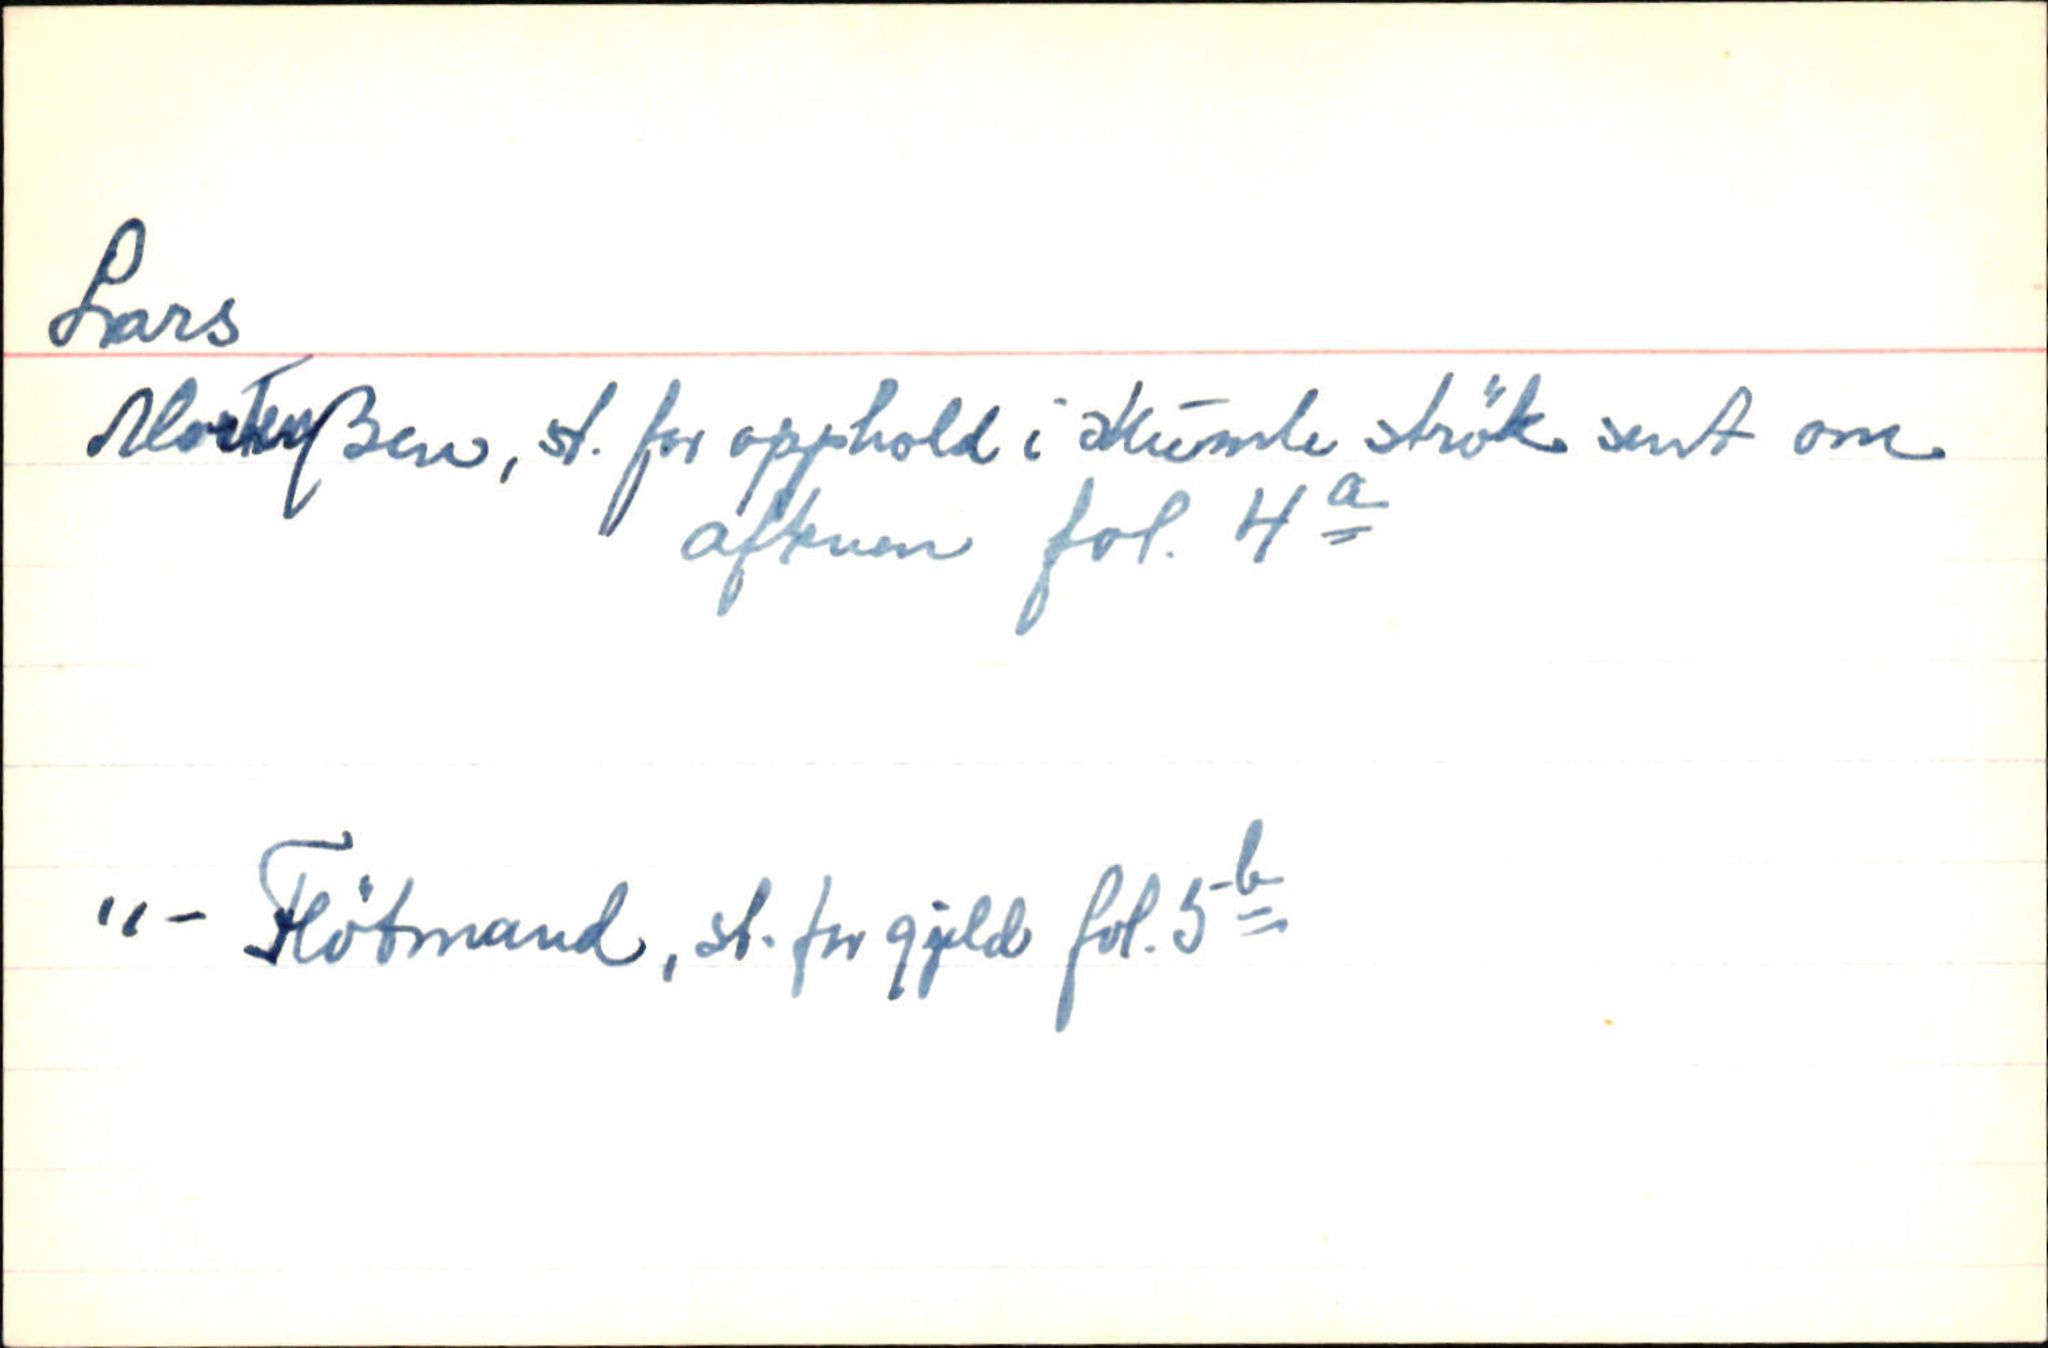 Lars
Morten ßen, st. for opphold i skumle strök sent om
aftenen fol. 4a
"- Flötmand, st. for gjeld fol. 5b